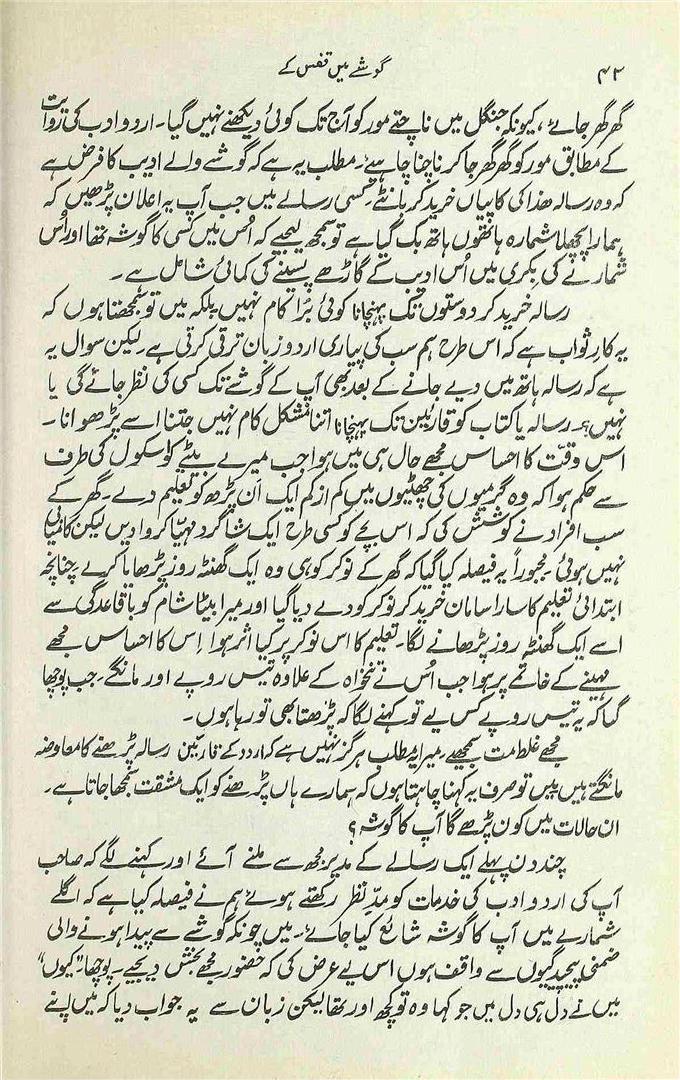 ۴۲
گوشے میں قفس کے
گھر گھر جائے، کیونکہ جنگل میں ناچتے مور کو آج تک کوئی دیکھنے نہیں گیا۔ اردو ادب کی روایت
کے مطابق مور کو گھر گھر جا کر ناچنا چاہیے۔ مطلب یہ ہے کہ گوشے والے ادیب کا فرض ہے
کہ وہ رسالہ ھذا کی کاپیاں خرید کر بانٹے۔ کسی رسالے میں جب آپ یہ اعلان پڑھیں کہ
ہمارا پچھلا شمارہ ہاتھوں ہاتھ بک گیا ہے تو سمجھ لیجیے کہ اُس میں کسی کا گوشہ تھا اور اُس
شمارے کی بکری میں اُس ادیب کے گاڑھے پسینے کی کمائی شامل ہے۔
رسالہ خرید کر دوستوں تک پہنچانا کوئی بُرا کام نہیں بلکہ میں تو سمجھتا ہوں کہ
یہ کارِ ثواب ہے کہ اس طرح ہم سب کی پیاری اردو زبان ترقی کرتی ہے۔ لیکن سوال یہ
ہے کہ رسالہ ہاتھ میں دیے جانے کے بعد بھی آپ کے گوشے تک کسی کی نظر جائے گی یا
نہیں۔ رسالہ یا کتاب کو قارئین تک پہنچانا اتنا مشکل کام نہیں جتنا اسے پڑھوانا۔
اس وقت کا احساس مجھے حال ہی میں ہوا جب میرے بیٹے کو سکول کی طرف
سے حکم ہوا کہ وہ گرمیوں کی چھٹیوں میں کم از کم ایک اَن پڑھ کو تعلیم دے۔ گھر کے
سب افراد نے کوشش کی کہ اس بچے کو کسی طرح ایک شاگرد مہیّا کروا دیں لیکن کامیابی
نہیں ہوئی۔ مجبوراً یہ فیصلہ کیا گیا کہ گھر کے نوکر کو ہی وہ ایک گھنٹہ روز پڑھایا کرے۔ چنانچہ
ابتدائی تعلیم کا سارا سامان خرید کر نوکر کو دے دیا گیا اور میرا بیٹا شام کو باقاعدگی سے
اسے ایک گھنٹہ روز پڑھانے لگا۔ تعلیم کا اس نوکر پر کیا اثر ہوا اِس کا احساس مجھے
مہینے کے خاتمے پر ہوا جب اُس نے تنخواہ کے علاوہ تیس روپے اور مانگے۔ جب پوچھا
گیا کہ یہ تیس روپے کس لیے تو کہنے لگا کہ پڑھتا بھی تو رہا ہوں۔
مجھے غلط مت سمجھیے۔ میرا یہ مطلب ہرگز نہیں ہے کہ اردو کے قارئین رسالہ پڑھنے کا معاوضہ
مانگتے ہیں میں تو صرف یہ کہنا چاہتا ہوں کہ ہمارے ہاں پڑھنے کو ایک مشقت سمجھا جاتا ہے۔
ان حالات میں کون پڑھے گا آپ کا گوشہ؟
چند دن پہلے ایک رسالے کے مدیر مجھ سے ملنے آئے اور کہنے لگے کہ صاحب
آپ کی اردو ادب کی خدمات کو مدِّ نظر رکھتے ہوئے ہم نے فیصلہ کیا ہے کہ اگلے
شمارے میں آپ کا گوشہ شائع کیا جائے۔ میں چونکہ گوشے سے پیدا ہونے والی
ضمنی پیچیدگیوں سے واقف ہوں اس لیے عرض کی کہ حضور مجھے بخش دیجیے۔ پوچھا۔ ”کیوں“
میں نے دل ہی دل میں جو کہا وہ تو کچھ اور تھا لیکن زبان سے یہ جواب دیا کہ میں اپنے